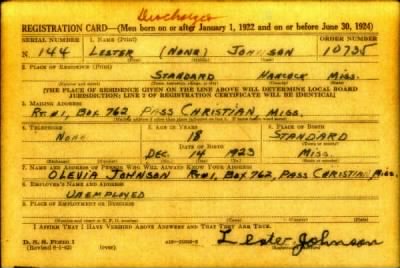 Discharged
REGISTRATION CARD—(Men born on or after January 1, 1922 and on or before June 30, 1924)
SERIAL NUMBER 1. NAME (Print) ORDER NUMBER
N 144 LESTER (NONE) JOHNSON 10735
2. PLACE OF RESIDENCE (Print)
STANDARD HANCOCK MISS.
[THE PLACE OF RESIDENCE GIVEN ON THE LINE ABOVE WILL DETERMINE LOCAL BOARD
JURISDICTION; LINE 2 OF REGISTRATION CERTIFICATE WILL BE IDENTICAL]
3. MAILING ADDRESS
RT#1, BOX 762 PASS CHRISTIAN MISS.
4. TELEPHONE 5. AGE IN YEARS 6. PLACE OF BIRTH
NONE 18 STANDARD
DATE OF BIRTH
DEC. 14 1923 MISS.
7. NAME AND ADDRESS OF PERSON WHO WILL ALWAYS KNOW YOUR ADDRESS
OLEVIA JOHNSON RT#1, BOX 762, PASS CHRISTIAN, MISS.
8. EMPLOYER'S NAME AND ADDRESS
UNEMPLOYED
9. PLACE OF EMPLOYMENT OR BUSINESS
I AFFIRM THAT I HAVE VERIFIED ABOVE ANSWERS AND THAT THEY ARE TRUE.
D. S. S. FORM 1
Lester Johnson